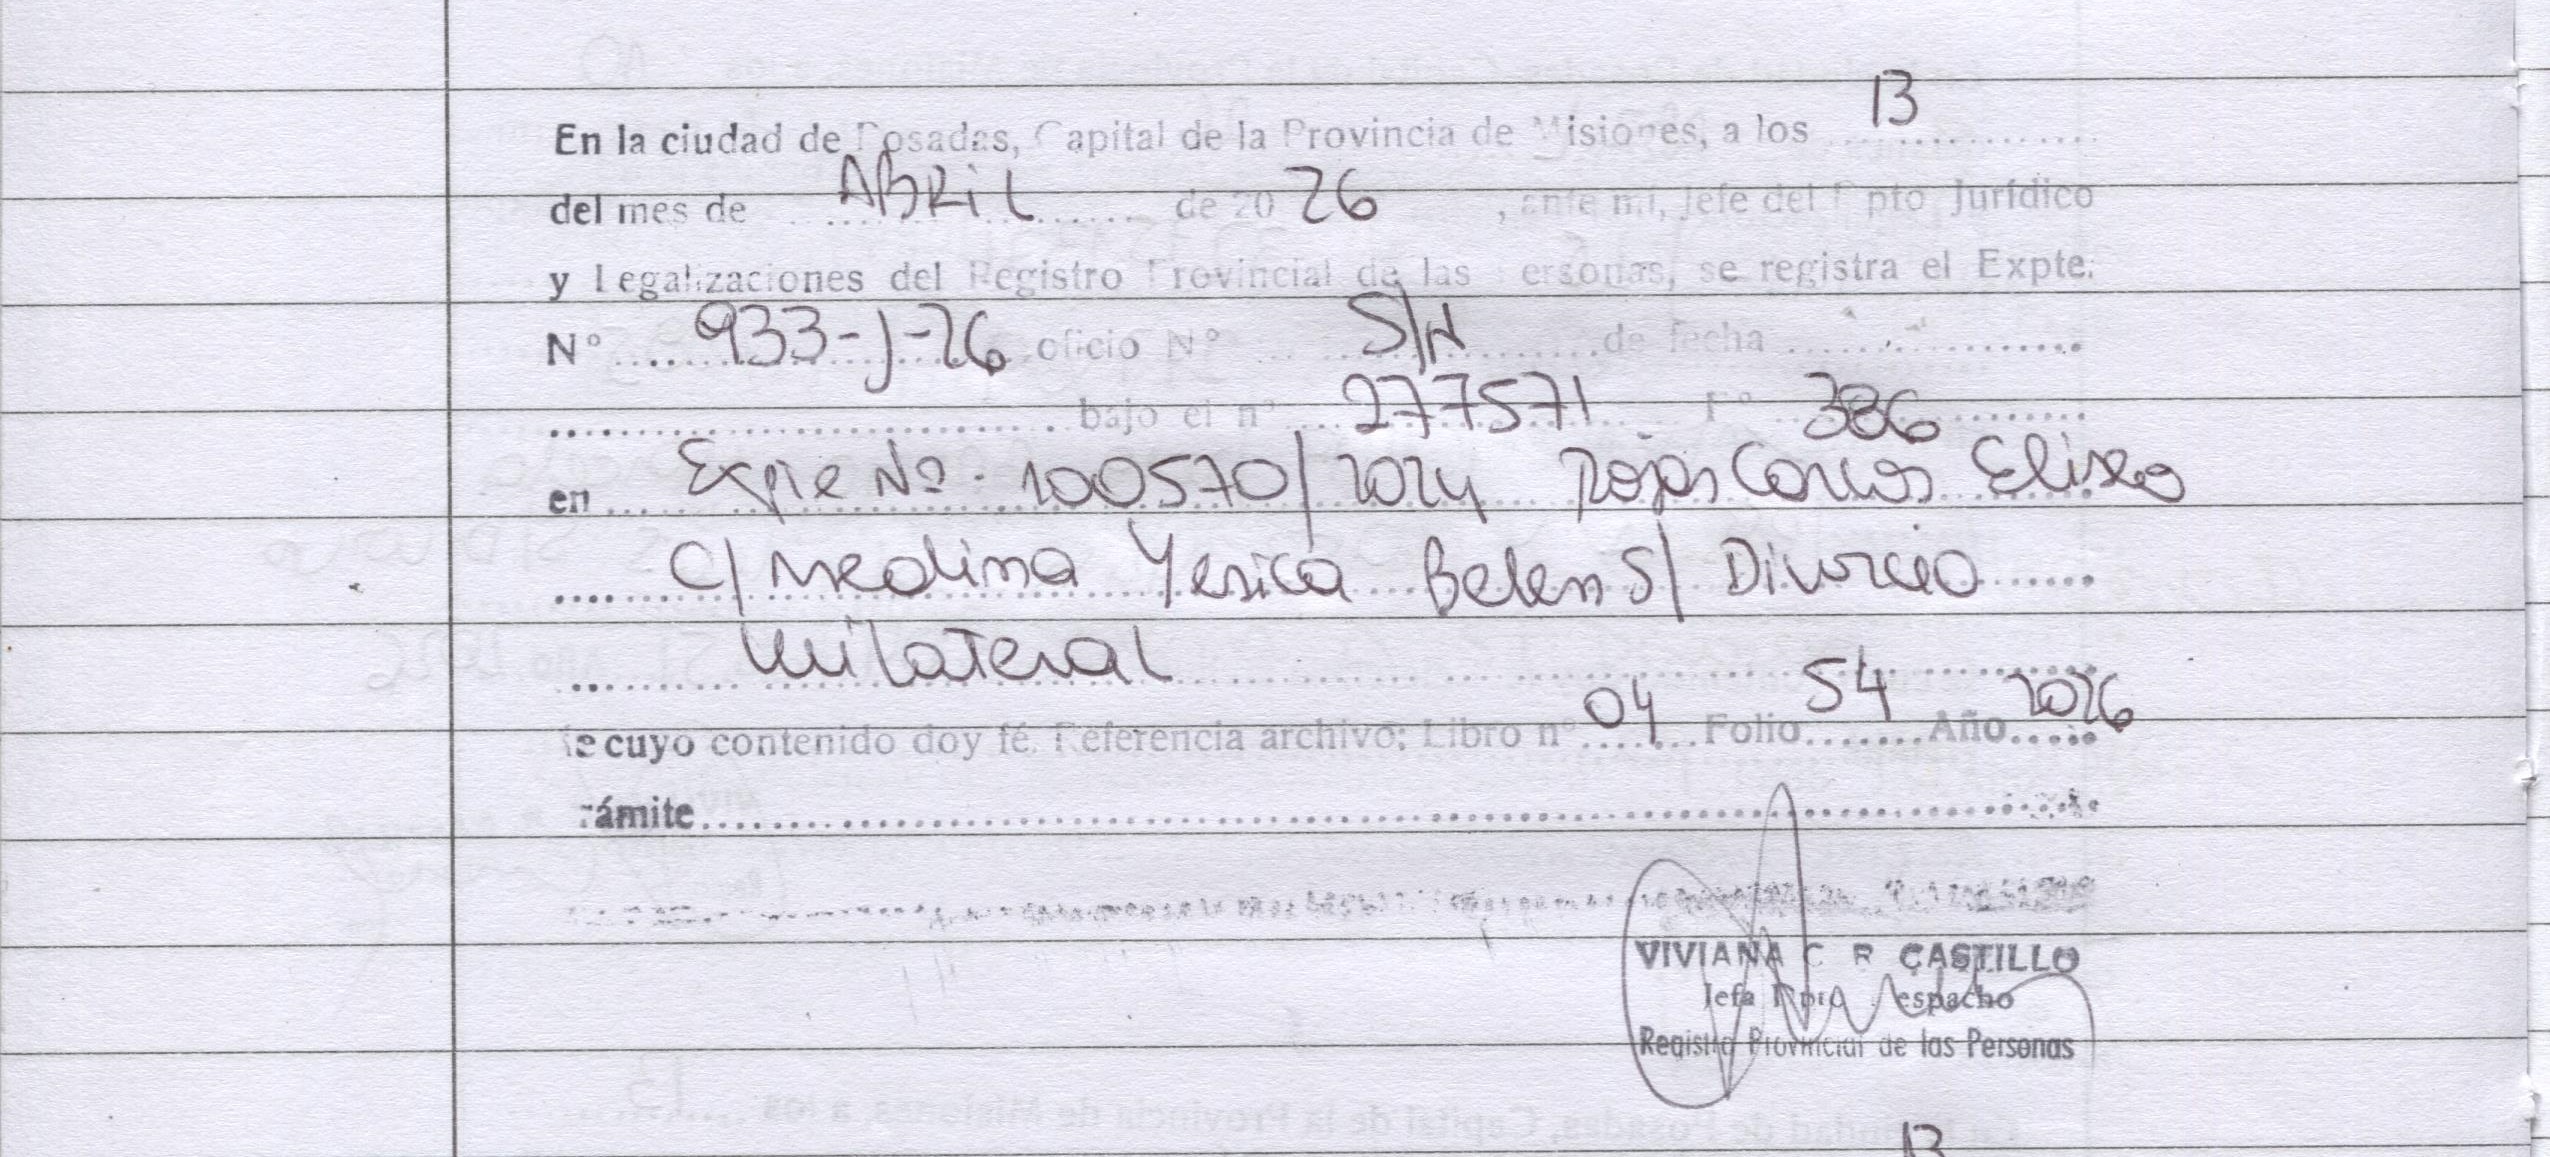 En la ciudad de Posadas, Capital de la Provincia de Misiones, a los 13
del mes de ABRIL de 2026, ante mí, Jefe del Dpto Jurídico
y Legalizaciones del Registro Provincial de las Personas, se registra el Expte.
N° 933-J-26 oficio N° S/N de fecha
bajo el n° 277571 F° 386
en Expte Nº. 100570/2024 Rojas Carlos Eliseo
C/ Medina Yesica Belen S/ Divorcio
Unilateral
de cuyo contenido doy fé. Referencia archivo: Libro n° 04 Folio 54 Año 2026
rámite
VIVIANA C R CASTILLO
Jefa Dpto Despacho
Registro Provincial de las Personas
13